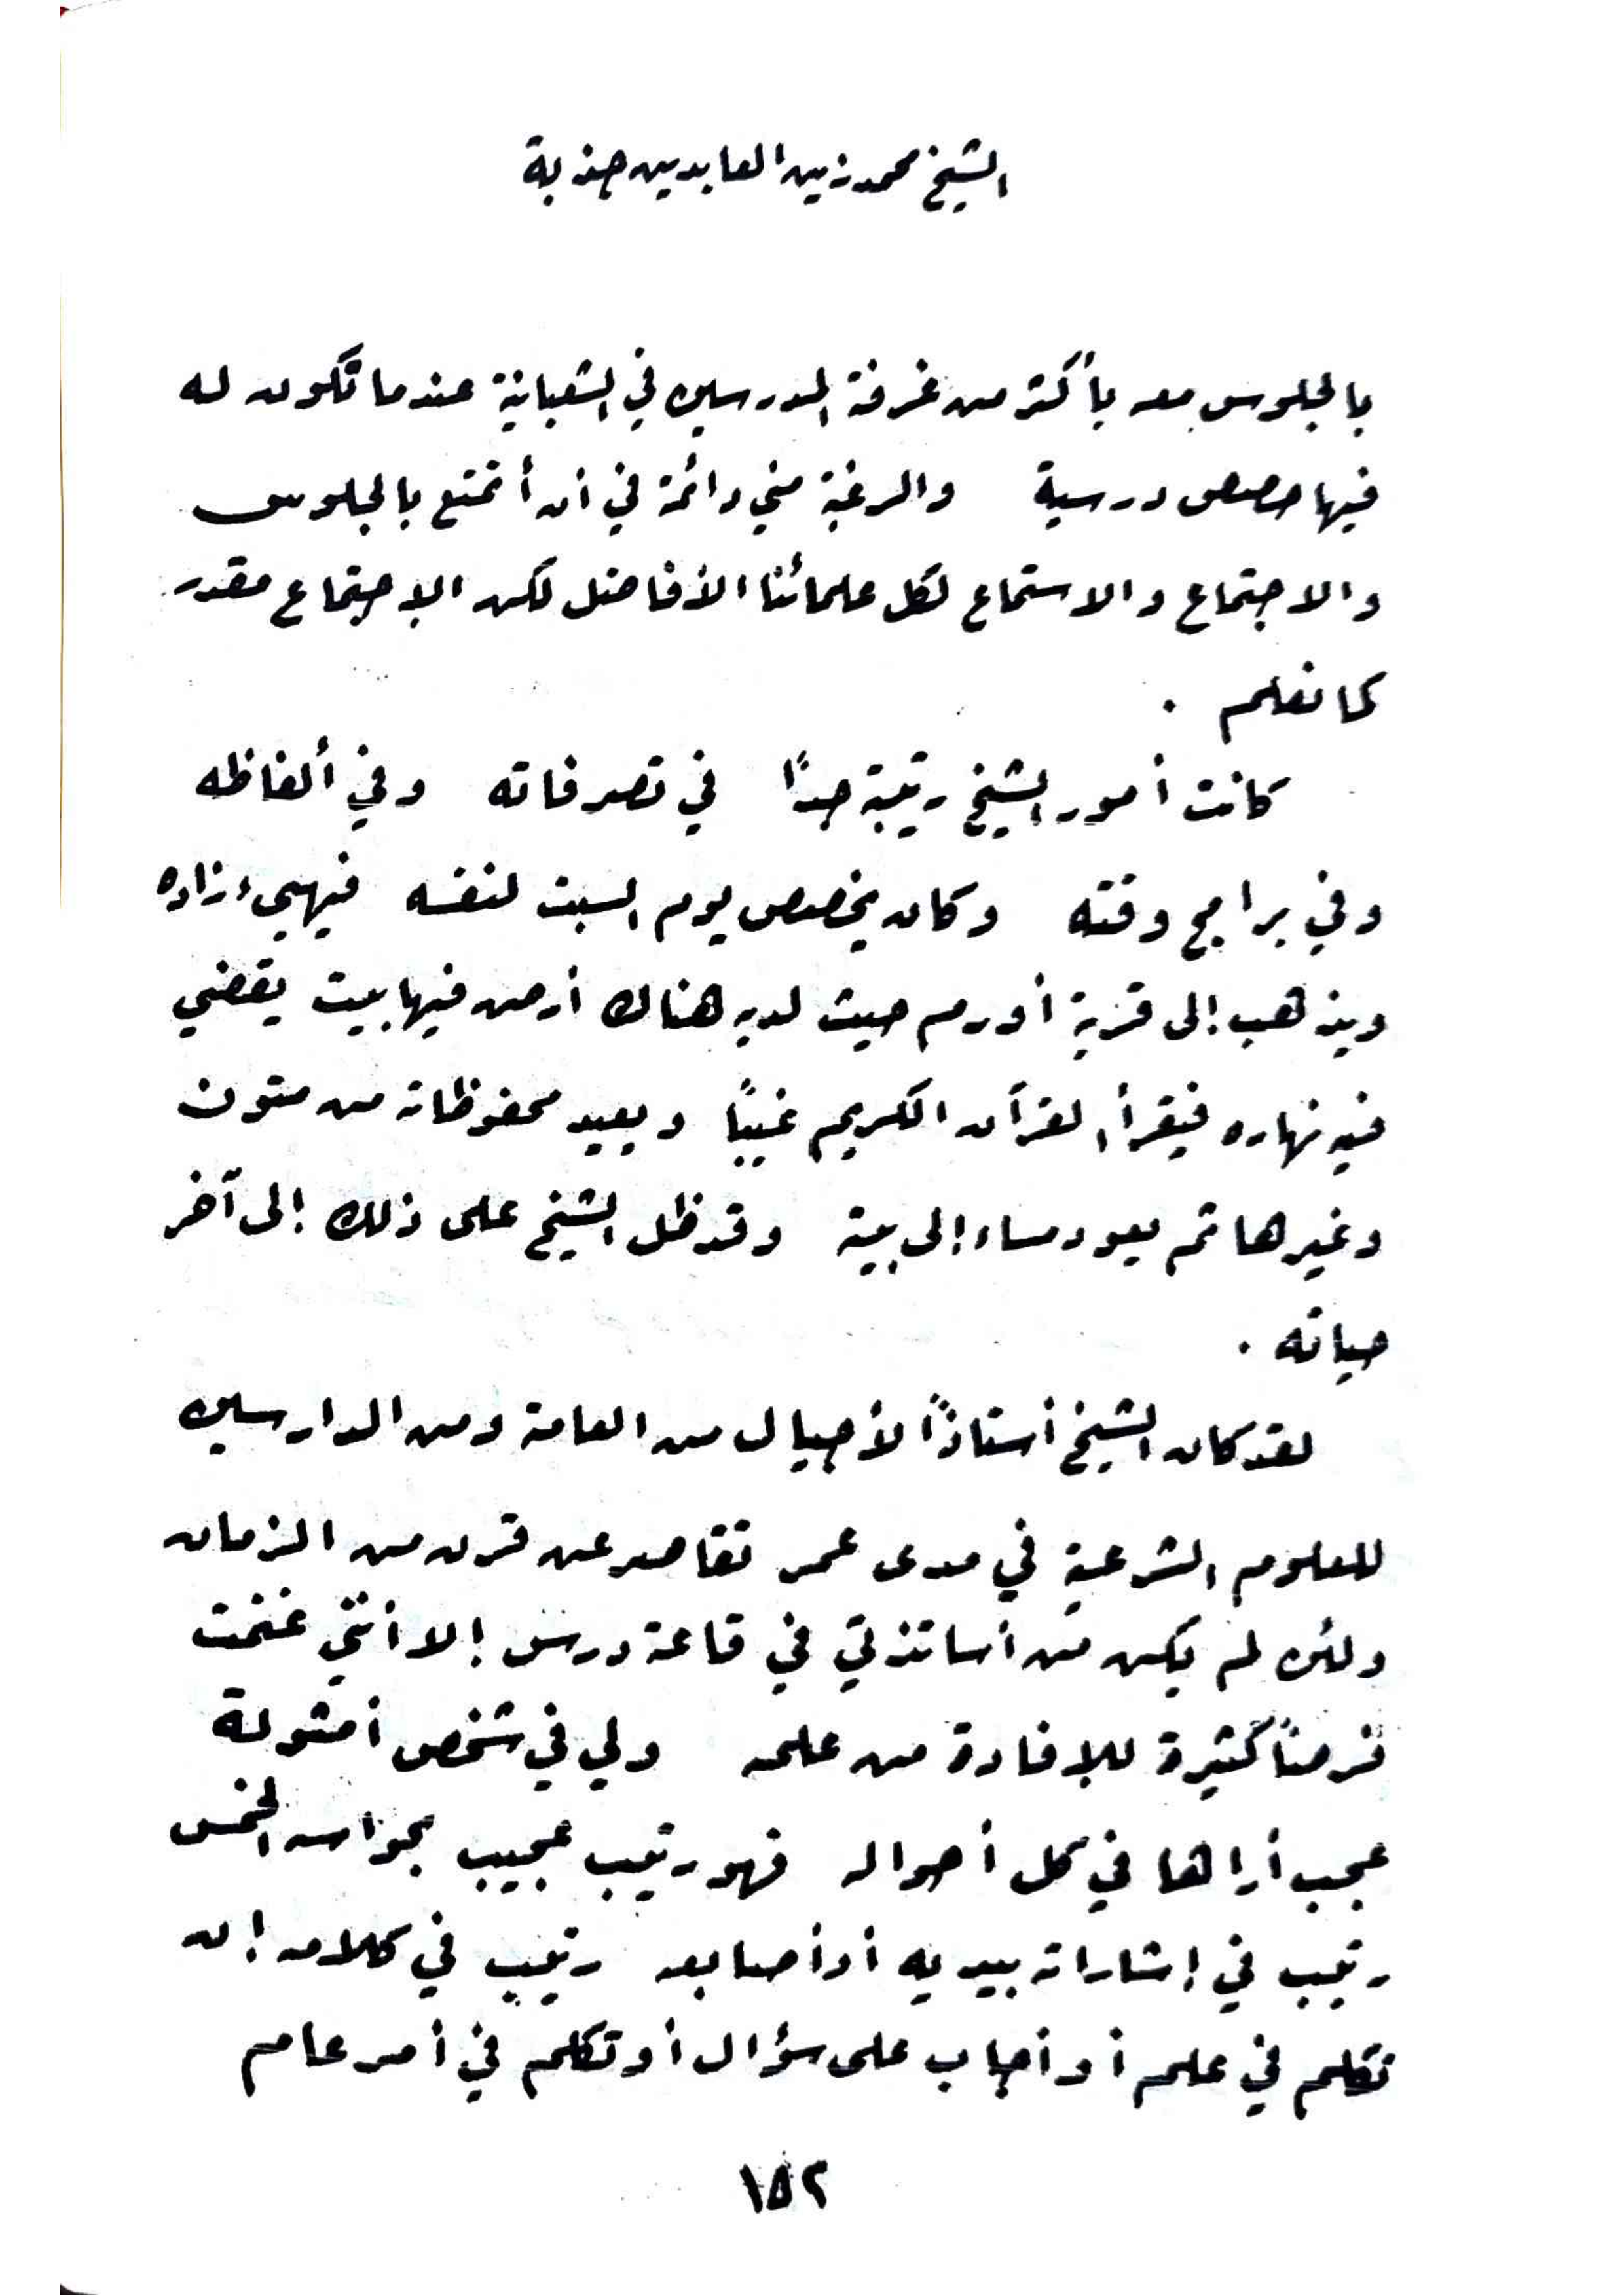 الشيخ محمد زين العابدين جذبة
بالجلوس معه بأكثر من غرفة المدرسين في الشعبانية عندما تكون له
فيها حصص درسية والرغبة مني دائمة في أن أتمتع بالجلوس
والاجتماع والاستماع لكل علمائنا الأفاضل لكن الاجتماع مقدر
كما نعلم .
كانت أمور الشيخ رتيبة جداً في تصرفاته وفي ألفاظه
وفي برامج وقته وكان يخصص يوم السبت لنفسه فيهيء زاده
ويذهب إلى قرية أورم حيث لديه هناك أرض فيها بيت يقضي
فيه نهاره فيقرأ القرآن الكريم غيباً ويعيد محفوظاته من متون
وغيرها ثم يعود مساء إلى بيته وقد ظل الشيخ على ذلك إلى آخر
حياته .
لقد كان الشيخ أستاذاً لأجيال من العامة ومن الدارسين
للعلوم الشرعية في مدى عمر تقاصر عن قرن من الزمان
ولئن لم يكن من أساتذتي في قاعة درس إلا أنني غنمت
فرصاً كثيرة للإفادة من علمه ولي في شخص أمثولة
عجب أراها في كل أحواله فهو رتيب عجيب بحواسه الخمس
رتيب في إشاراته بيديه أو أصابعه رتيب في كلامه إن
تكلم في علم أو أجاب على سؤال أو تكلم في أمر عام
١٥٢